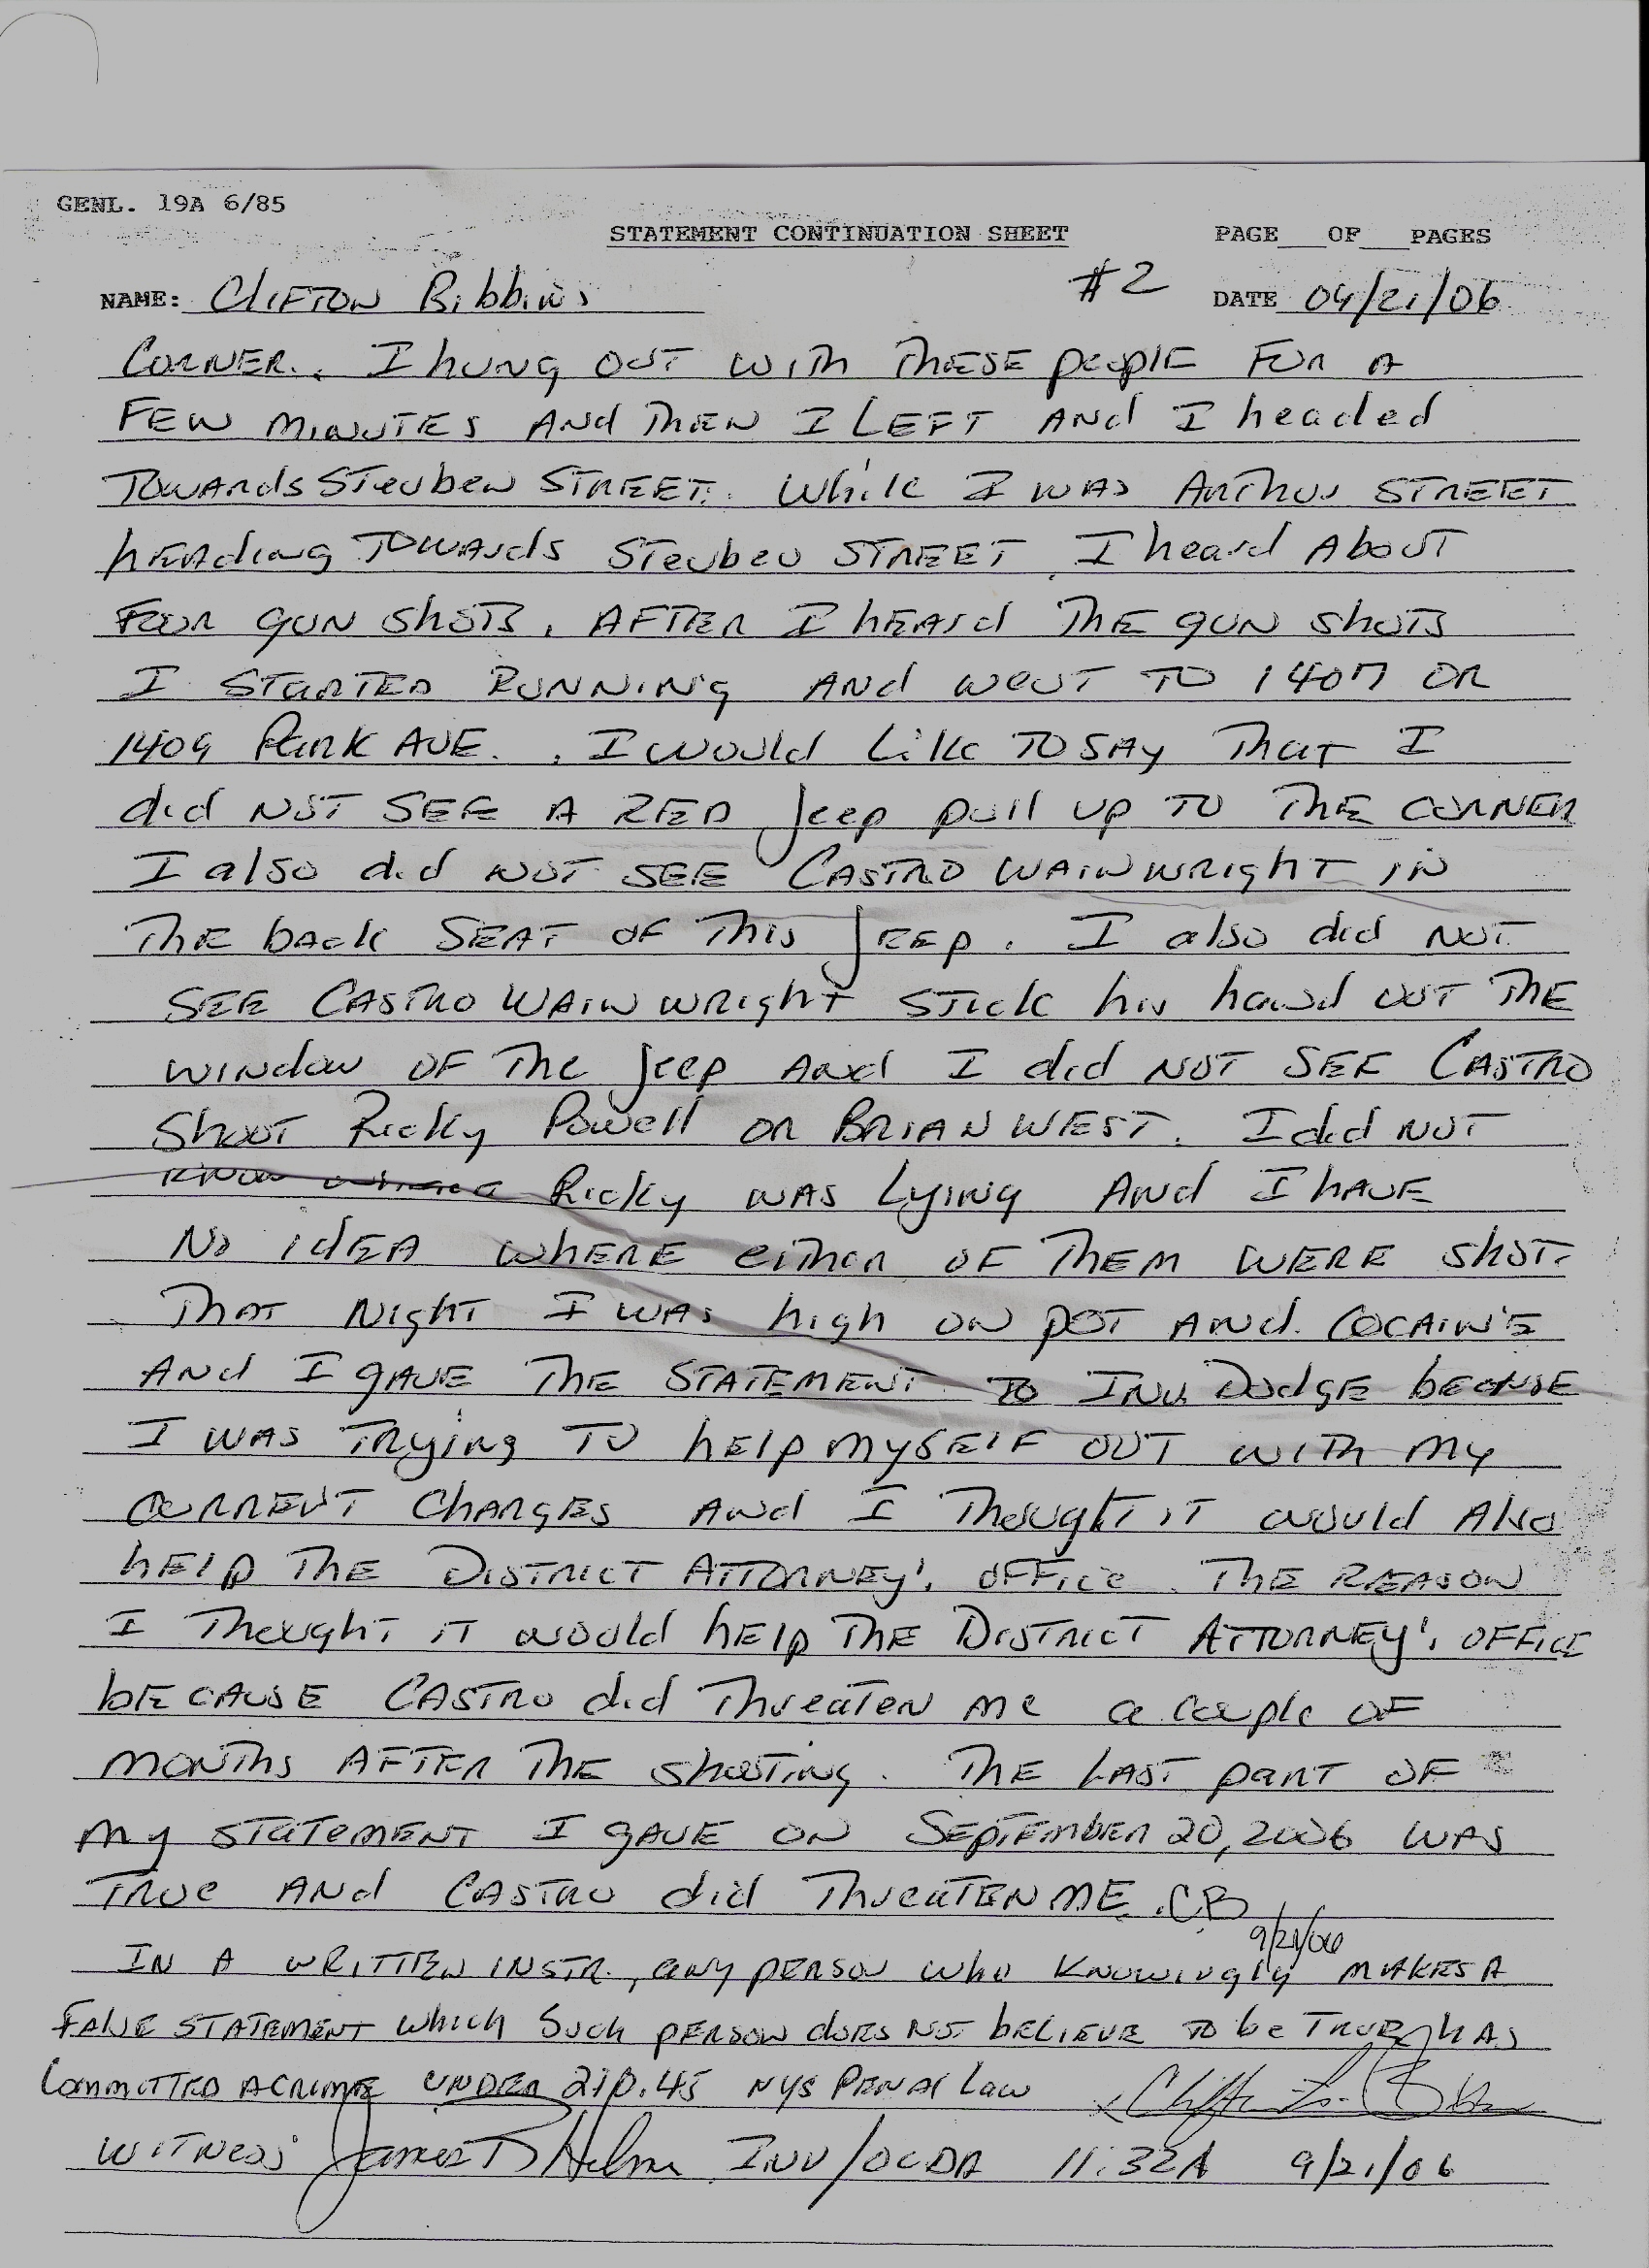 GENL. 19A 6/85
STATEMENT CONTINUATION SHEET PAGE___OF___PAGES
NAME: CLIFTON Bibbins #2 DATE 09/21/06
CORNER. I hung OUT WITH THESE people FOR A
FEW MINUTES AND THEN I LEFT AND I headed
TOWARDS STEUBEN STREET. While I WAS ARTHUR STREET
hEADING TOWARDS STEUBEN STREET I heard ABOUT
FOUR GUN ShOTS. AFTER I hEARd THE GUN ShOTS
I STARTED RUNNING AND WENT TO 1407 OR
1409 PARK AVE. I WOULD LIKE TO SAY THAT I
did NOT SEE A RED Jeep pull UP TO THE CORNER
I also did NOT SEE CASTRO WAINWRIGHT IN
THE back SEAT OF This JEEP. I also did NOT
SEE CASTRO WAINWRIGHT STICK his hand OUT THE
WINDOW OF The Jeep And I did NOT SEE CASTRO
ShOOT Ricky Powell OR BRIAN WEST. I did NOT
KNOW Ricky WAS LYING AND I HAVE
NO IDEA WHERE eiTher OF THEM WERE ShOT.
THAT NIGHT I WAS high ON POT AND COCAINE
AND I GAVE THE STATEMENT TO INV. DODGE because
I WAS TRYING TO HELP MYSELF OUT WITH MY
CURRENT CHARGES AND I ThoughT IT would Also
HELP THE DISTRICT ATTORNEY'S OFFICE. THE REASON
I ThoughT IT would HELP THE DISTRICT ATTORNEY'S OFFICE
bECAUSE CASTRO did ThreaTEN me a couple OF
MONThs AFTER THE ShOOTING. THE LAST PART OF
MY STATEMENT I GAVE ON SEPTEMBER 20, 2006 WAS
TRUE AND CASTRO did ThreaTEN ME. CB
9/21/06
IN A WRITTEN INSTR., any PERSON who KNOWINGLY MAKES A
FALSE STATEMENT which Such PERSON dOES NOT bELIEVE TO be TRUE hAS
COMMITTED A CRIME UNDER 210.45 NYS PENAL LAW x
WITNESS James Helm INV/OCDA 11:32A 9/21/06